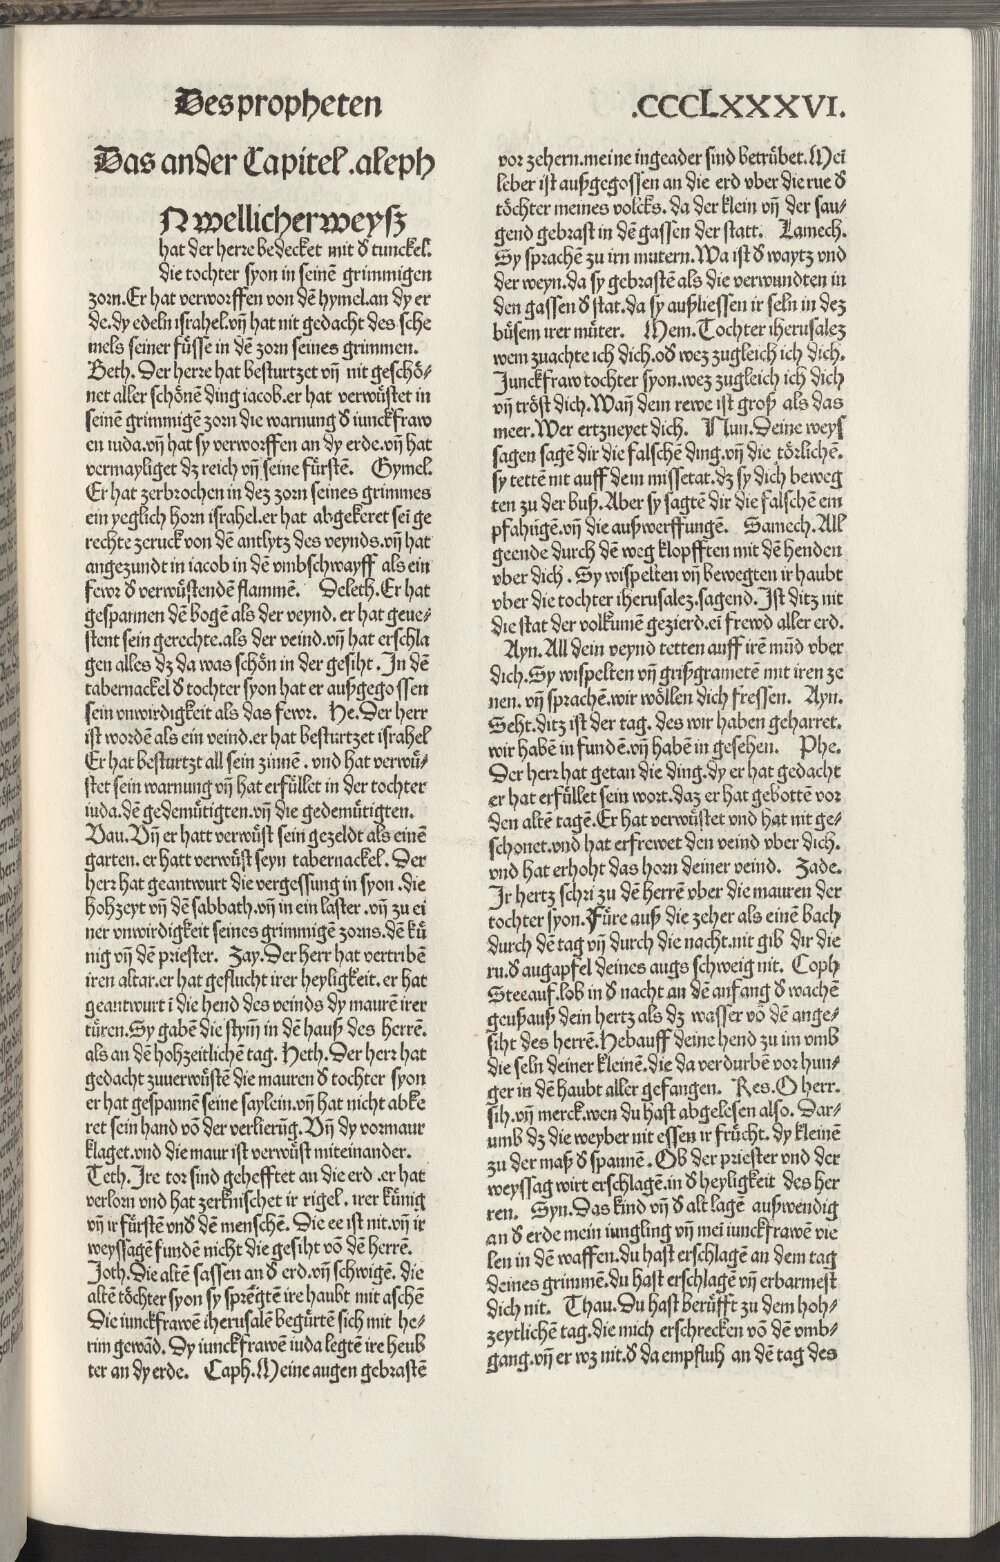 Des propheten
.CCCLXXXVI.
Das ander Capitel .aleph
N wellicher weysz
hat der herre bedecket mit đ tunckel.
die tochter syon in seinē grimmigen
zorn. Er hat verworffen von dē hymel. an dy er
de. dy edeln israhel. vñ hat nit gedacht des sche
mels seiner fu̎sse in dē zorn seines grimmen.
Beth. Der herre hat besturtzet vñ nit geschö⸗
net aller schönē ding iacob. er hat verwu̎stet in
seinē grimmigē zorn die warnung đ iunckfraw
en iuda. vñ hat sy verworffen an dy erde. vñ hat
vermayliget dz reich vñ seine fu̎rstē. Gymel.
Er hat zerbrochen in dez zorn seines grimmes
ein yeglich horn israhel. er hat abgekeret sei ge
rechte zeruck von dē antlytz des veynds. vñ hat
angezundt in iacob in dē vmbschwayff als ein
fewr đ verwu̎stendē flammē. Deleth. Er hat
gespannen dē bogē als der veynd. er hat geue⸗
stent sein gerechte. als der veind. vñ hat erschla
gen alles dz da was schön in der gesiht. In dē
tabernackel đ tochter syon hat er außgegossen
sein vnwirdigkeit als das fewr. He. Der herr
ist wordē als ein veind. er hat besturtzet israhel
Er hat besturtzt all sein zinnē. vnd hat verwu̎⸗
stet sein warnung vñ hat erfu̎llet in der tochter
iuda. dē gedemu̎tigten. vñ die gedemu̎tigten.
Vau. Vñ er hatt verwu̎st sein gezeldt als einē
garten. er hatt verwu̎st seyn tabernackel. Der
herz hat geantwurt die vergessung in syon. die
hohzeyt vñ dē sabbath. vñ in ein laster. vñ zu ei
ner vnwirdigkeit seines grimmigē zorns. dē ku̎
nig vñ dē priester. Zay. Der herr hat vertribē
iren altar. er hat geflucht irer heyligkeit. er hat
geantwurt ī die hend des veinds dy maurē irer
tu̎ren. Sy gabē die stym̄ in dē hauß des herrē.
als an dē hohzeitlichē tag. Heth. Der herz hat
gedacht zuuerwu̎stē die mauren đ tochter syon
er hat gespannē seine saylein. vñ hat nicht abke
ret sein hand võ der verlierūg. Vñ dy vormaur
klaget. vnd die maur ist verwu̎st miteinander.
Teth. Ire tor sind gehefftet an die erd. er hat
verlorn vnd hat zerknischet ir rigel. irer ku̎nig
vñ ir fu̎rstē vnđ dē menschē. Die ee ist nit. vñ ir
weyssagē fundē nicht die gesiht võ dē herrē.
Joth. Die altē sassen an đ erd. vñ schwigē. die
altē töchter syon sy sprēgtē ire haubt mit aschē
Die iunckfrawē iherusalē begu̎rtē sich mit he⸗
rim gewād. Dy iunckfrawē iuda legtē ire heub
ter an dy erde. Caph. Meine augen gebrastē
vor zehern. meine ingeader sind betru̎bet. Mei
leber ist außgegossen an die erd vber die rue đ
töchter meines volcks. da der klein vñ der sau⸗
gend gebrast in dē gassen der statt. Lamech.
Sy sprachē zu irn mutern. Wa ist đ waytz vnd
der weyn. da sy gebrastē als die verwundten in
den gassen đ stat. da sy außliessen ir seln in dez
bu̎sem irer mu̎ter. Mem. Tochter iherusalez
wem zuachte ich dich. ođ wez zugleich ich dich.
Junckfraw tochter syon. wez zugleich ich dich
vñ tröst dich. Wañ dem rewe ist groß als das
meer. Wer ertzneyet dich. Nun. Deine weys
sagen sagē dir die falschē ding. vñ die törlichē.
sy tettē nit auff dem missetat. dz sy dich beweg
ten zu der buß. Aber sy sagtē dir die falschē em
pfahūgē. vñ die außwerffungē. Samech. All
geende durch dē weg klopfften mit dē henden
vber dich. Sy wispelten vñ bewegten ir haubt
vber die tochter iherusalez. sagend. Ist ditz nit
die stat der volkumē gezierd. ei frewd aller erd.
Ayn. All dein veynd tetten auff irē mūd vber
dich. Sy wispelten vñ grißgrametē mit iren ze
nen. vñ sprachē. wir wöllen dich fressen. Ayn.
Seht. ditz ist der tag. des wir haben geharret.
wir habē in fundē. vñ habē in gesehen. Phe.
Der herz hat getan die ding. dy er hat gedacht
er hat erfu̎llet sein wort. daz er hat gebottē vor
den altē tagē. Er hat verwu̎stet vnd hat nit ge⸗
schonet. vnd hat erfrewet den veind vber dich.
vnd hat erhoht das horn deiner veind. Zade.
Ir hertz schri zu dē herrē vber die mauren der
tochter syon. Fu̎re auß die zeher als einē bach
durch dē tag vñ durch die nacht. nit gib dir die
ru. đ augapfel deines augs schweig nit. Coph
Stee auf. lob in đ nacht an dē anfang đ wachē
geuß auß dein hertz als dz wasser võ dē ange⸗
siht des herrē. Heb auff deine hend zu im vmb
die seln deiner kleinē. die da verdurbē vor hun⸗
ger in dē haubt aller gefangen. Res. O herr.
sih. vñ merck. wen du hast abgelesen also. Dar⸗
umb dz die weyber nit essen ir fru̎cht. dy kleinē
zu der maß đ spannē. Ob der priester vnd der
weyssag wirt erschlagē. in đ heyligkeit des her
ren. Syn. Das kind vñ đ alt lagē außwendig
an đ erde mein iungling vñ mei iunckfrawē vie
len in dē waffen. du hast erschlagē an dem tag
deines grimmē. du hast erschlagē vñ erbarmest
dich nit. Thau. Du hast beru̎fft zu dem hoh⸗
zeytlichē tag. die mich erschrecken võ dē vmb⸗
gang. vñ er wz nit. đ da empfluh an dē tag des